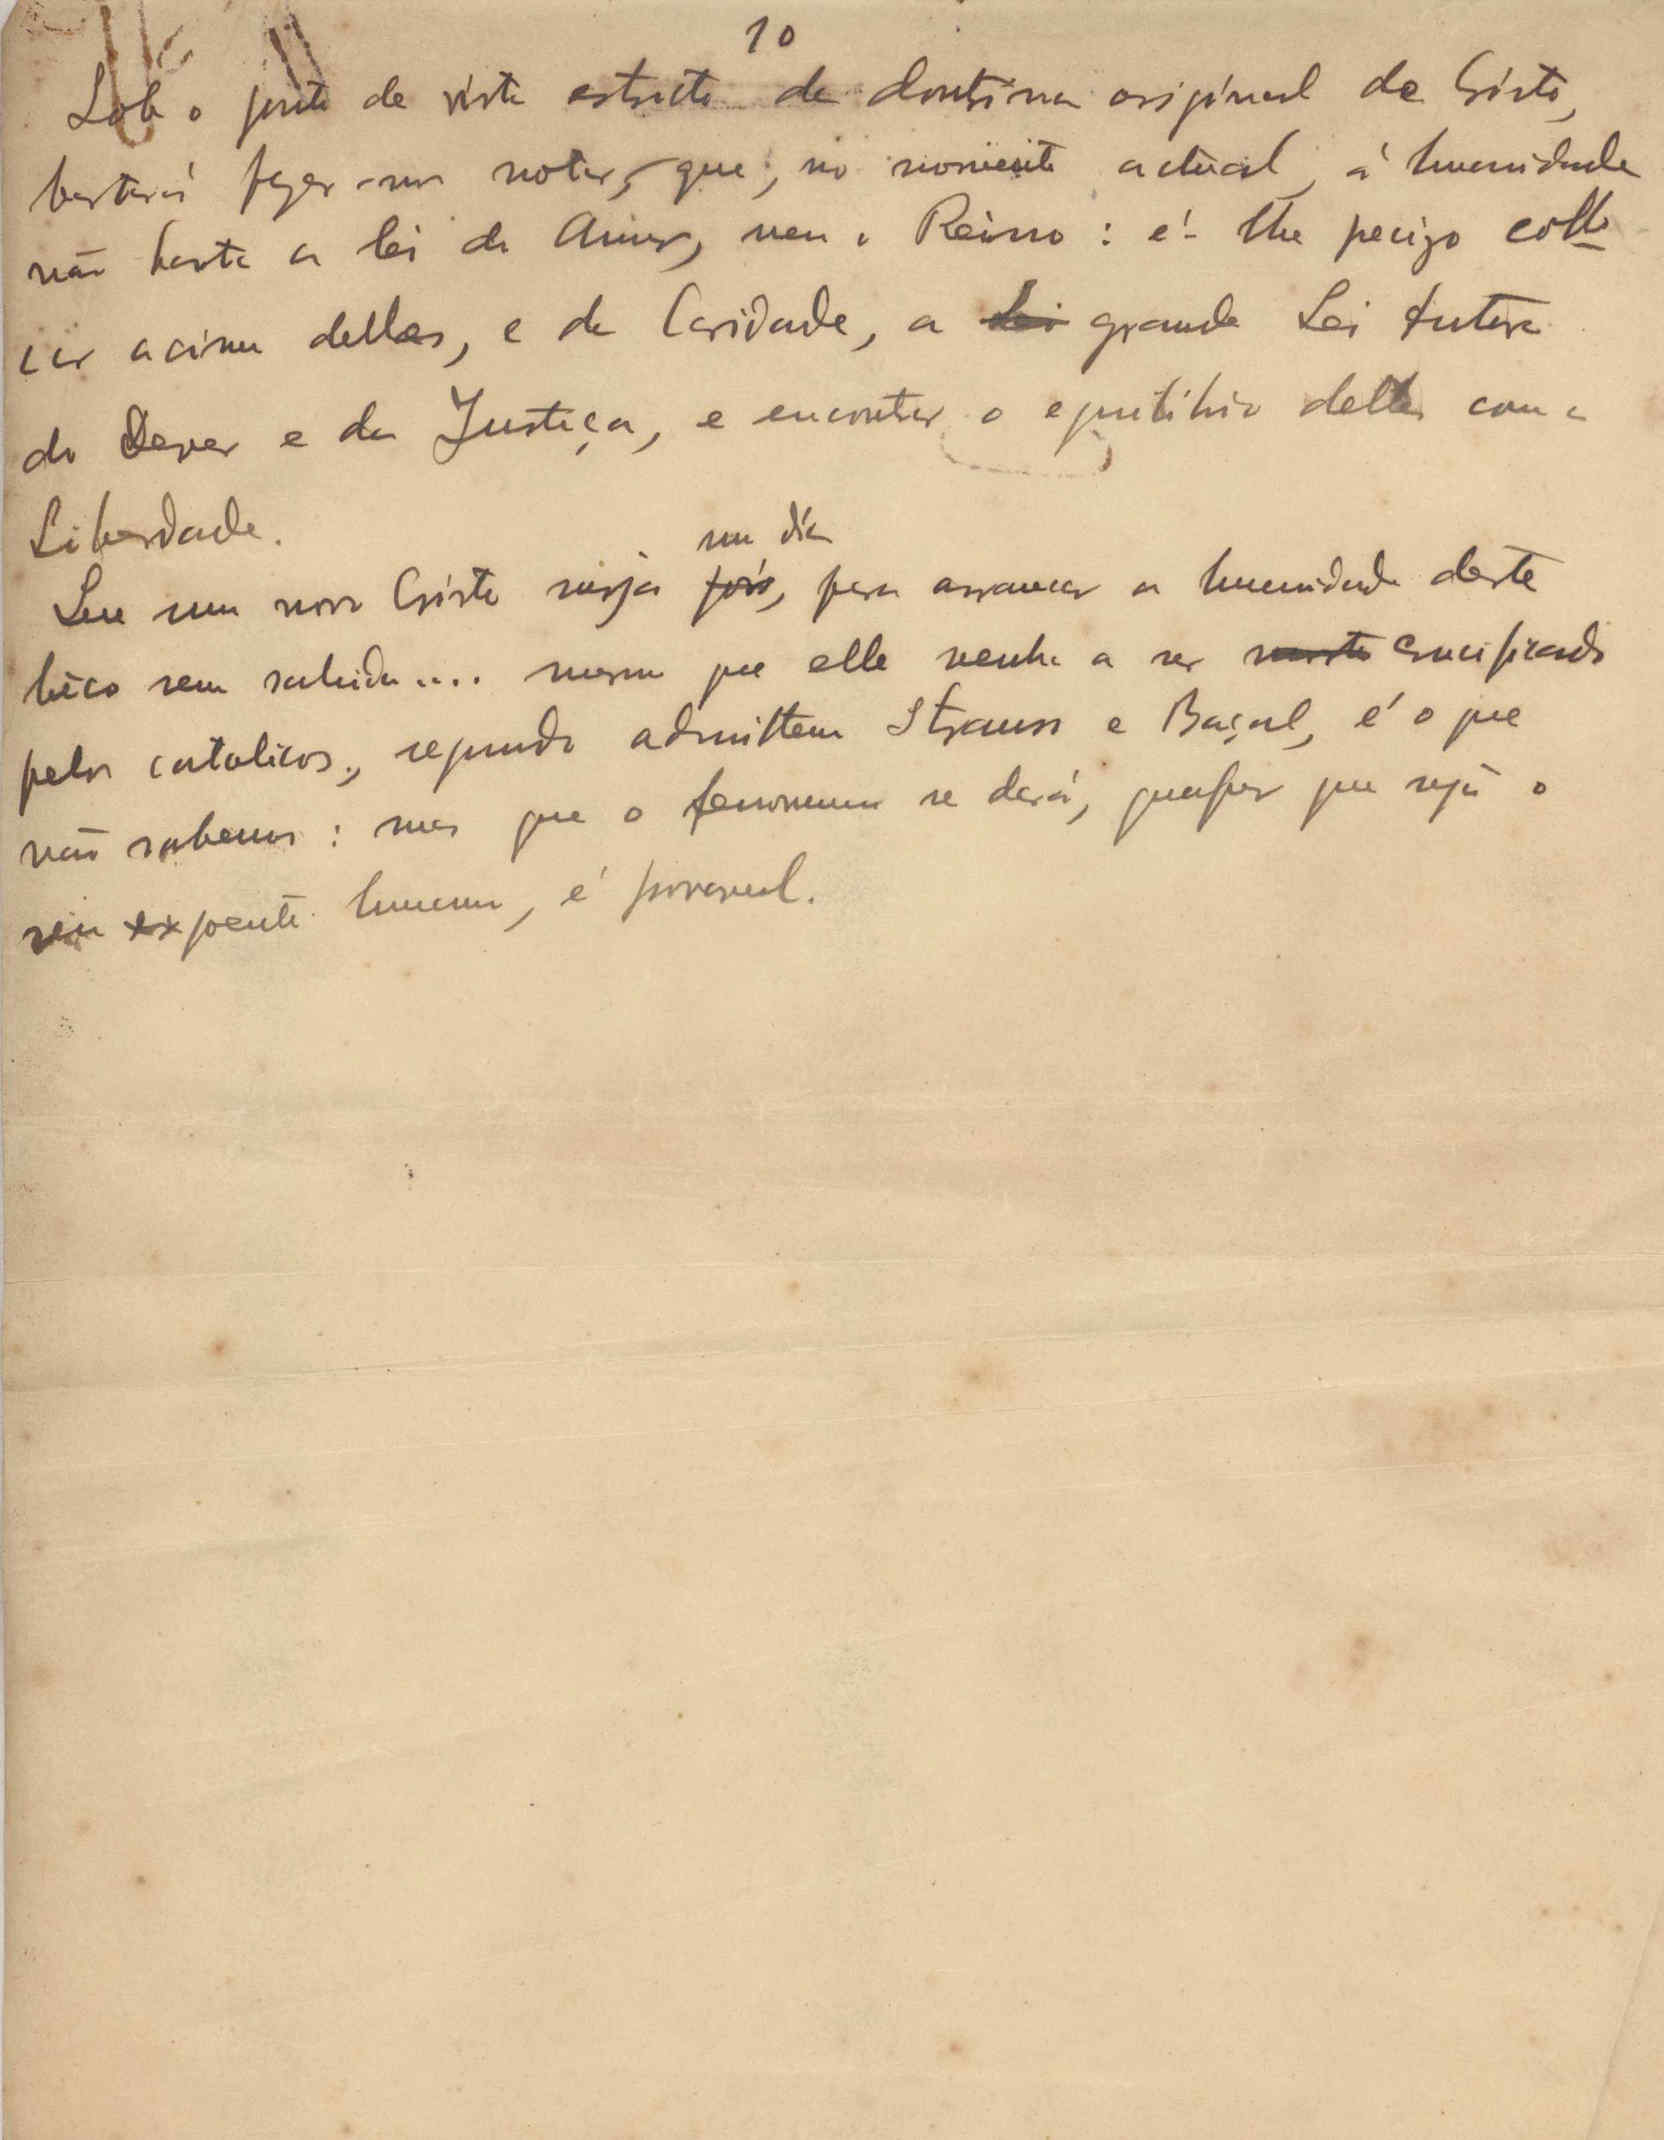 10
Sob o ponto de vista estricto da doutrina original de Cristo,
bastará fazer-nos notar, que, no momento actual, á humanidade
não basta a lei do Amor, nem o Reino: é-lhe preciso collo
car acima dellas, e da Caridade, a Lei grande Lei tutora
do Dever e da Justiça, e encontrar o equilibrio dellas com a
Liberdade.
um dia
Que um novo Cristo surja pois, para arrancar a humanidade deste
bêco sem sahida.... mesmo que elle venha a ser morto crucificado
pelos catolicos, segundo admittem Strauss e, é o que
não sabemos: mas que o fenomeno se dará, qualquer que seja o
seu expoente humano, é provavel.